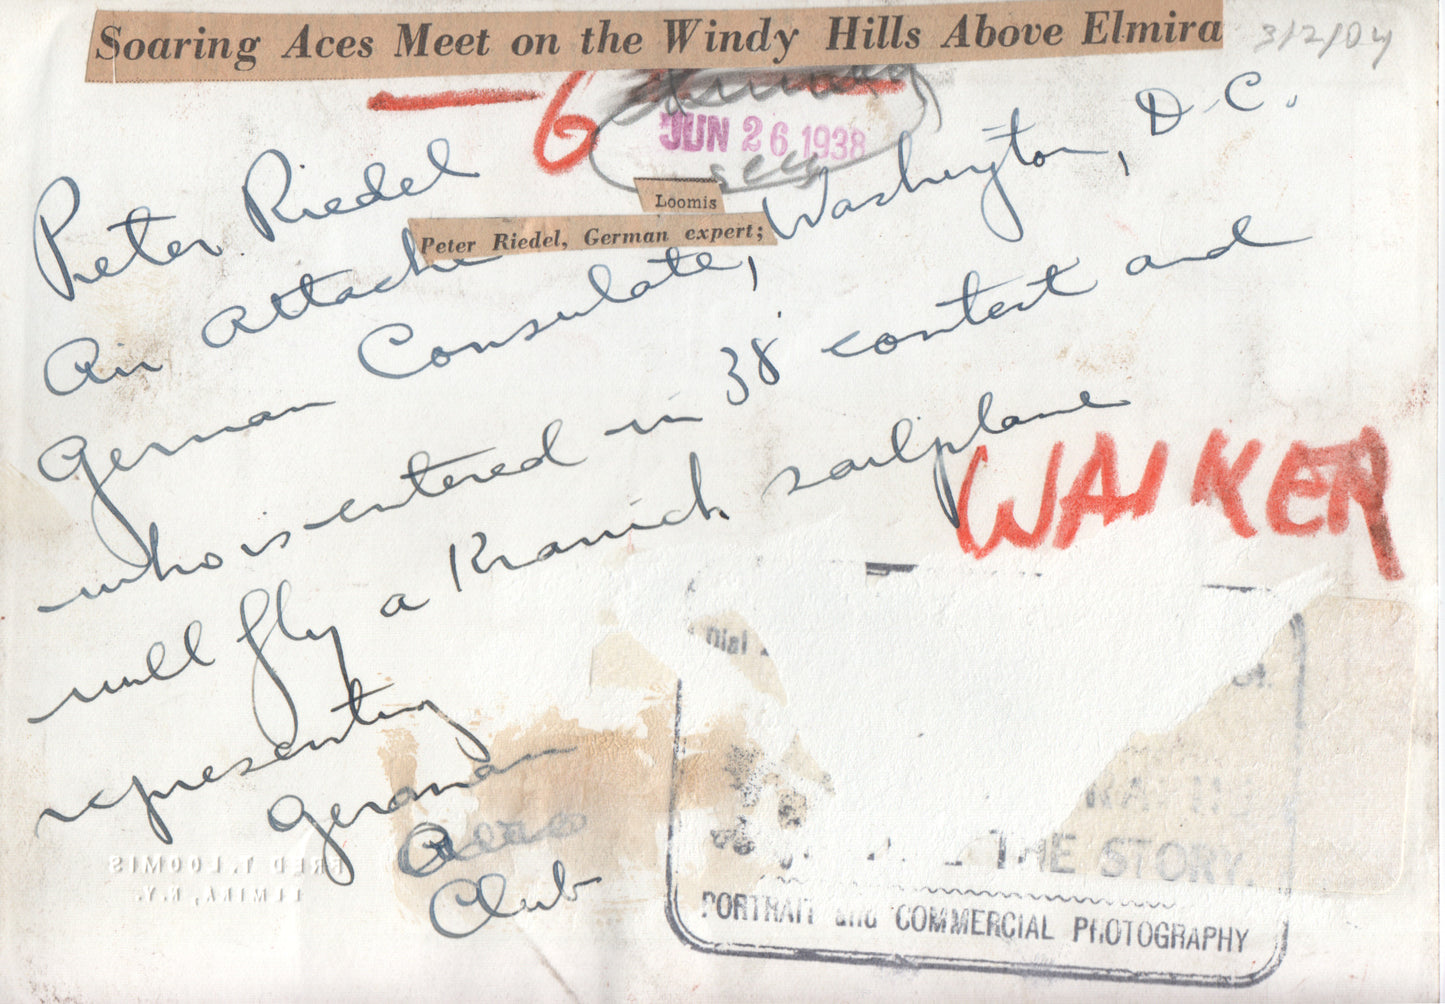 Soaring Aces Meet on the Windy Hills Above Elmira
3/2/04
6
JUN 26 1938
Loomis
Peter Riedel, German expert;
Peter Riedel
Air Attache
German Consulate, Washington, D.C.
who is entered in 38' contest and
will fly a Kranich sailplane
representing
German
Aero
Club
WALKER
FRED T. LOOMIS
ELMIRA, N.Y.
THE STORY.
PORTRAIT and COMMERCIAL PHOTOGRAPHY